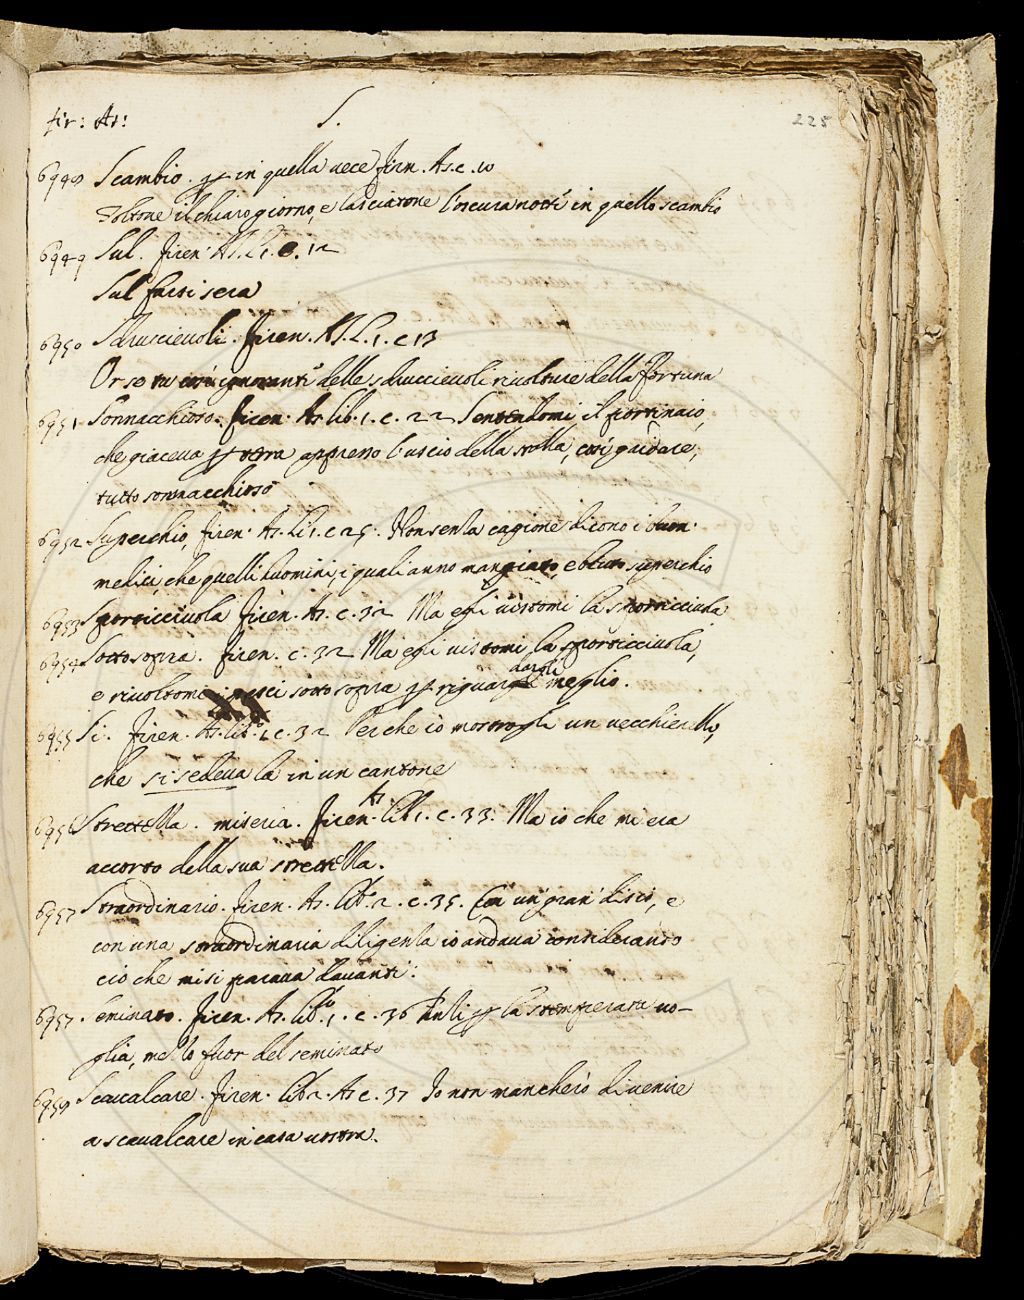 fir: As:
S.
225
6948 Scambio. p in quella vece firen. As. c. 10
Toltone il chiaro giorno, e lasciatone l'oscura notte in quello scambio
6949 Sul. firen. As. L. 1. c. 12
Sul farsi sera
6950 Sdruscievoli. firen. As. L. 1. c 13
Or se tu così ignoranti delle sdruccievoli rivolture della Fortuna
6951 Sonnacchioso. firen. As. lib. 1. c. 22 Sentendomi il portinaio,
che giaceva p terra appresso l'uscio della stalla, così gridare,
tutto sonnacchioso
6952 Superchio, firen. As. li 1. c 25. Non senza cagione dicono i buon
medici, che quelli huomini, i quali anno mangiato, e bevuto superchio
6953 Sporticciuola firen. As. c. 32 Ma egli vistomi la sporticciuola
6954 Sotto sopra. firen. c. 32 Ma egli vistomi la sporticciuola,
e rivoltomi i pesci sotto sopra p riguardargli meglio.
6955 Si. firen. As. lib. 1 c. 32 Perche io mostrogli un vecchierello,
che si sedeva là in un cantone
6956 Strettezza. miseria. firen. As. lib 1. c. 33. Ma io che mi era
accorto della sua strettezza.
6957 Straordinario. firen. As. lib. 2. c. 35. Con un gran disio, e
con una straordinaria diligenza io andava considerando
ciò che mi si parava davanti:
6957. Seminato. firen. As. lib. 1. c. 36 Anzi p la stemperata vo-
glia, mezzo fuor del seminato
6958 Scavalcare. firen. lib 2. As c. 37 Io non mancherò di venire
a scavalcare in casa vostra.